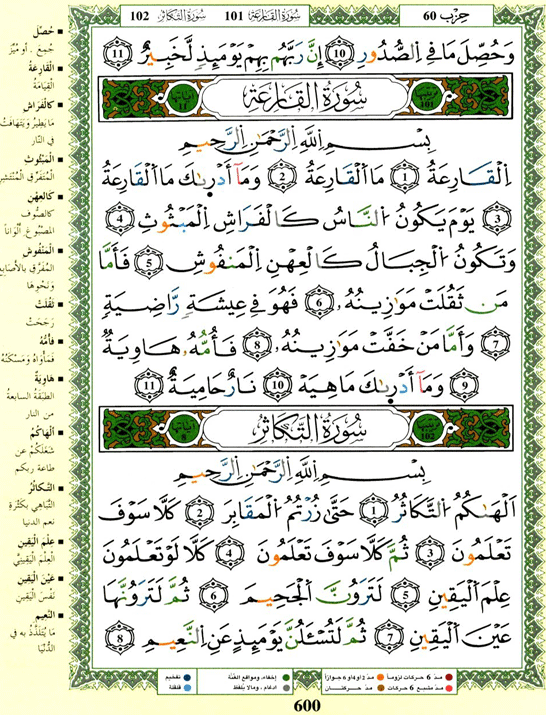 حزب 60
سُورَةُ القَارِعَة 101
سُورَةُ التَّكَاثُر 102
وَحُصِّلَ مَا فِي اِ۬لصُّدُورِ 10 إِنَّ رَبَّهُم بِهِمْ يَوْمَئِذٍ لَّخَبِيرٌ 11
ترتيبها 101 سُورَةُ القَارِعَة آياتها 11
بِسْمِ اِ۬للَّهِ اِ۬لرَّحْمَٰنِ اِ۬لرَّحِيمِ
اِ۬لْقَارِعَةُ 1 مَا اَ۬لْقَارِعَةُ 2 وَمَآ أَدْر۪ىٰكَ مَا اَ۬لْقَارِعَةُ
3 يَوْمَ يَكُونُ اُ۬لنَّاسُ كَالْفَرَاشِ اِ۬لْمَبْثُوثِ 4
وَتَكُونُ اُ۬لْجِبَالُ كَالْعِهْنِ اِ۬لْمَنفُوشِ 5 فَأَمَّا
مَن ثَقُلَتْ مَوَٰزِينُهُۥ 6 فَهُوَ فِي عِيشَةٍ رَّاضِيَةٍ
7 وَأَمَّا مَنْ خَفَّتْ مَوَٰزِينُهُۥ 8 فَأُمُّهُۥ هَاوِيَةٌ
9 وَمَآ أَدْر۪ىٰكَ مَا هِيَهْ 10 نَارٌ حَامِيَةٌ 11
ترتيبها 102 سُورَةُ التَّكَاثُر آياتها 8
بِسْمِ اِ۬للَّهِ اِ۬لرَّحْمَٰنِ اِ۬لرَّحِيمِ
اَ۬لْهَىٰكُمُ اُ۬لتَّكَاثُرُ 1 حَتَّىٰ زُرْتُمُ اُ۬لْمَقَابِرَ 2 كَلَّا سَوْفَ
تَعْلَمُونَ 3 ثُمَّ كَلَّا سَوْفَ تَعْلَمُونَ 4 كَلَّا لَوْ تَعْلَمُونَ
عِلْمَ اَ۬لْيَقِينِ 5 لَتَرَوُنَّ اَ۬لْجَحِيمَ 6 ثُمَّ لَتَرَوُنَّهَا
عَيْنَ اَ۬لْيَقِينِ 7 ثُمَّ لَتُسْـَٔلُنَّ يَوْمَئِذٍ عَنِ اِ۬لنَّعِيمِ 8
حُصِّلَ
جُمِعَ . أو مُيِّزَ
القَارِعَةُ
القِيَامَةُ
كَالْفَرَاشِ
مَا يَطِيرُ وَيَتَهَافَتُ
في النَّار
المَبْثُوثِ
المُتَفَرِّقِ المُنْتَشِرِ
كَالْعِهْنِ
كالصُّوف
المَصْبُوغِ أَلْوَاناً
المَنْفُوشِ
المُفَرَّقِ بِالأَصَابِع
وَنَحْوِهَا
ثَقُلَتْ
رَجَحَتْ
فَأُمُّهُ
فَمَأْوَاهُ وَمَسْكَنُهُ
هَاوِيَةٌ
الطبقة السابعة
من النار
أَلْهَاكُمْ
شَغَلَكُمْ عن
طاعة ربكم
التَّكَاثُرُ
التَّبَاهِي بِكَثْرَةِ
نعم الدنيا
عِلْمَ الْيَقِينِ
العِلْمَ اليَقِينِيَّ
عَيْنَ الْيَقِينِ
نَفْسَ اليَقِينِ
النَّعِيمِ
مَا يُتَلَذَّذُ به في
الدُّنْيَا
مدّ 6 حركات لزوماً مدّ 2 أو 4 أو 6 جوازاً إخفاء، ومواقع الغُنَّة تفخيم
مدّ مشبع 6 حركات مدّ حركتان ادغام ، وما لا يُلفظ قلقلة
600